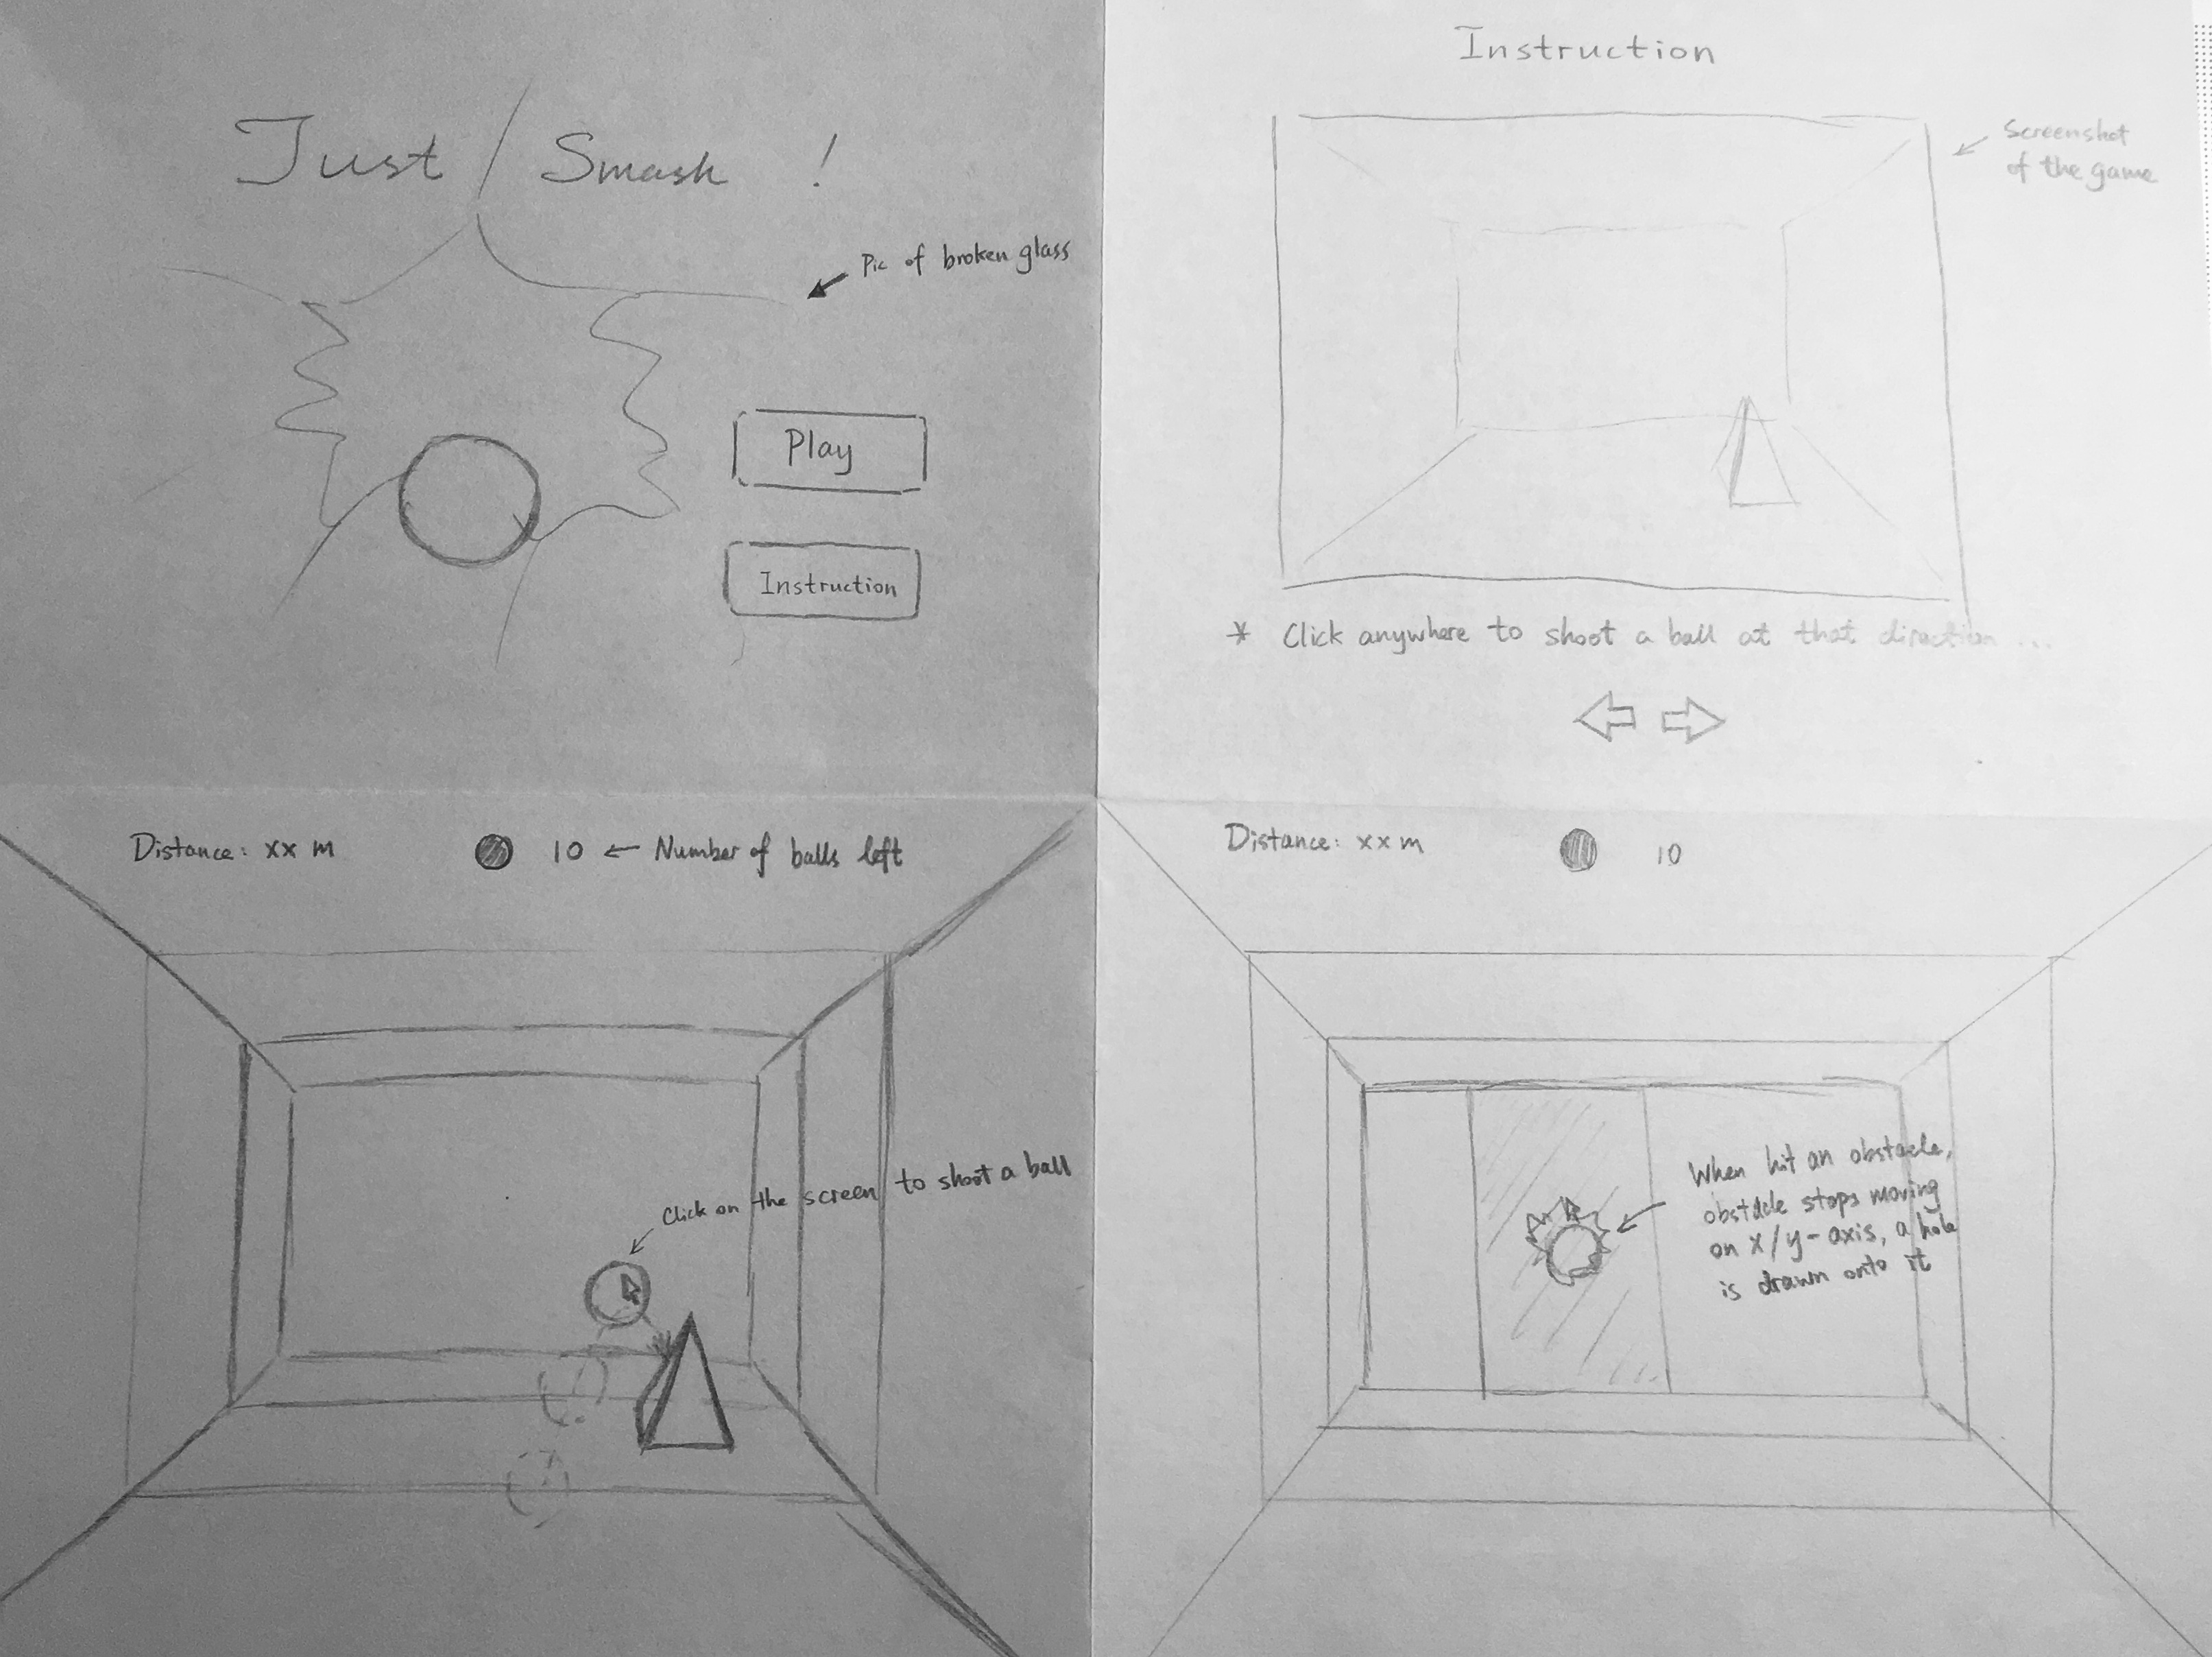 Just Smash !
Pic of broken glass
Play
Instruction
Instruction
Screenshot
of the game
* Click anywhere to shoot a ball at that direction ...
Distance: xx m 10 ← Number of balls left
Click on the screen to shoot a ball
Distance: xx m 10
When hit an obstacle,
obstacle stops moving
on x/y-axis, a hole
is drawn onto it